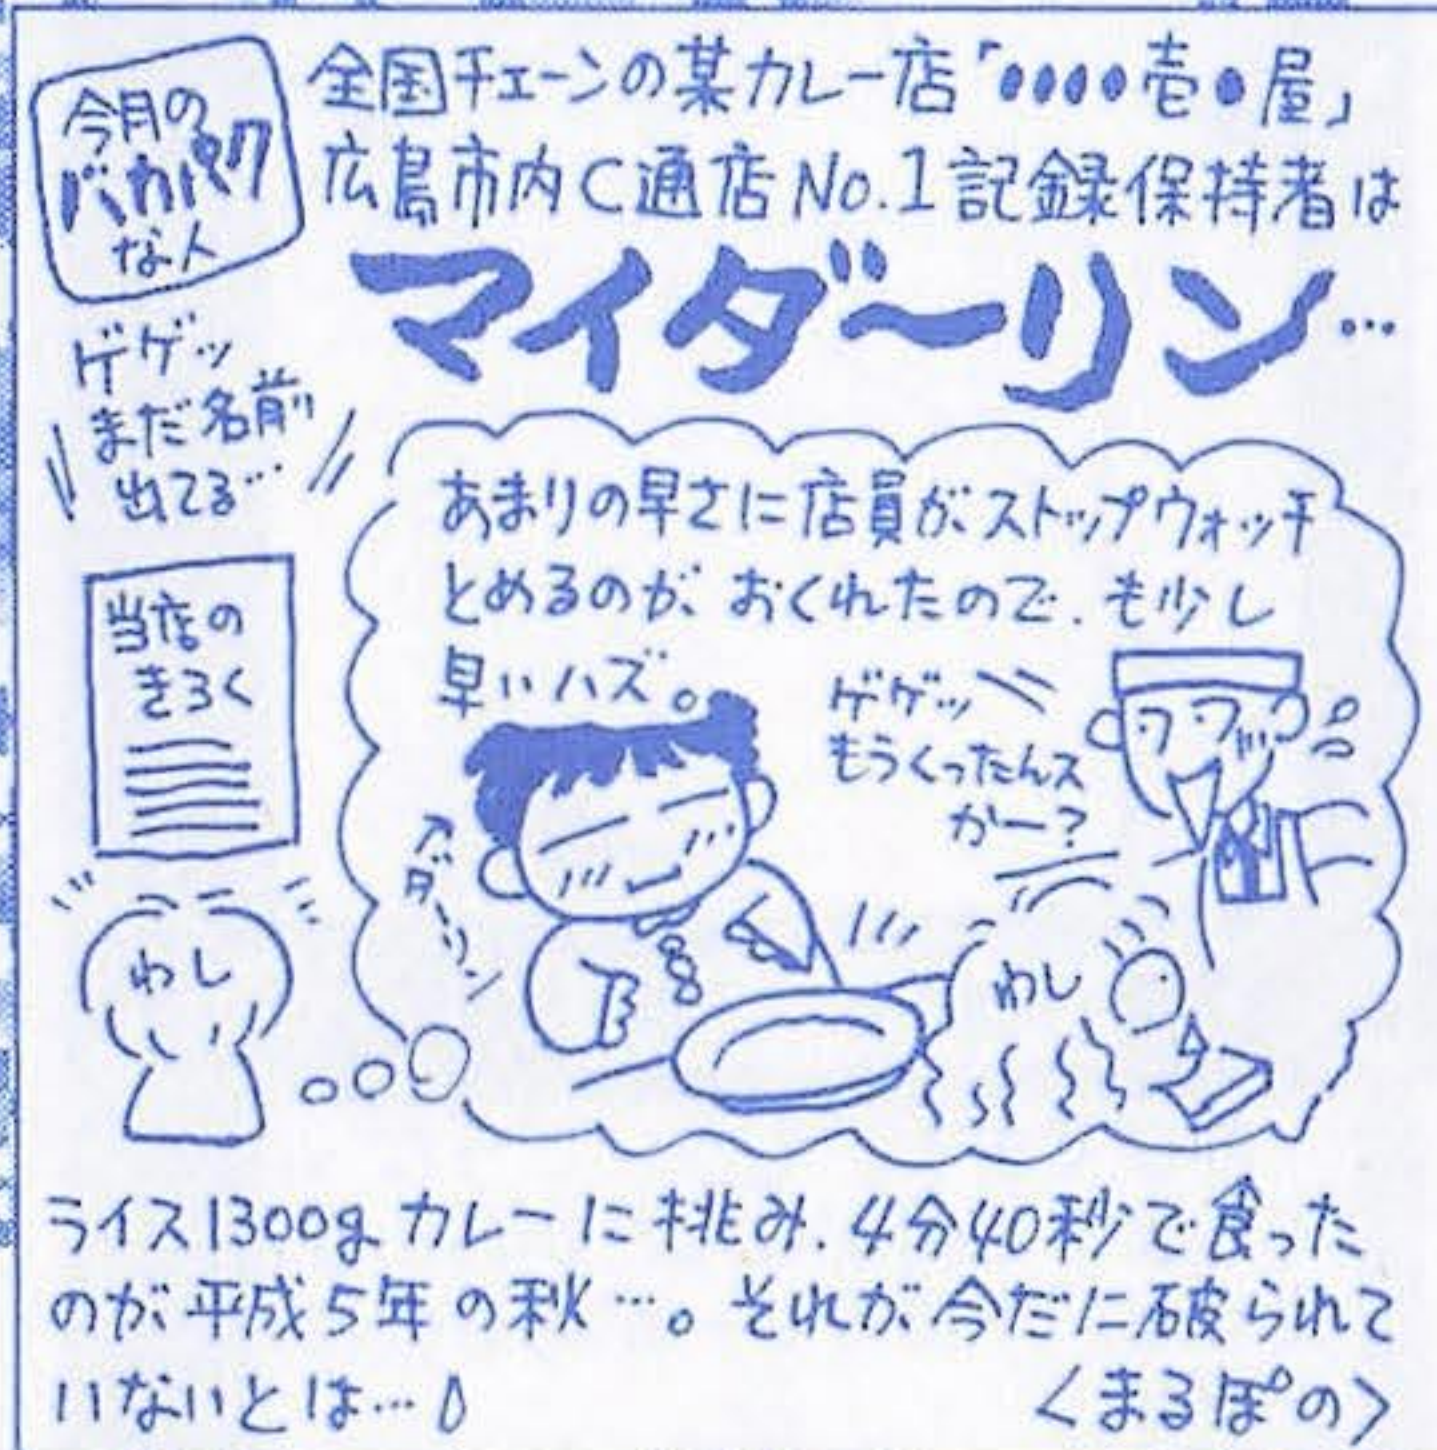 今月の
バカパク
な人
全国チェーンの某カレー店「●●●●壱●屋」
広島市内C通店No.1記録保持者は
マイダーリン…
ゲゲッ
まだ名前
出てる…
当店の
きろく
わし
あまりの早さに店員がストップウォッチ
とめるのが、おくれたので、も少し
早いハズ。
ゲゲッ
もうくったんス
かー?
ダーリン
わし
ライス1300gカレーに挑み、4分40秒で食った
のが平成5年の秋…。それが今だに破られて
いないとは…
〈まるぽの〉